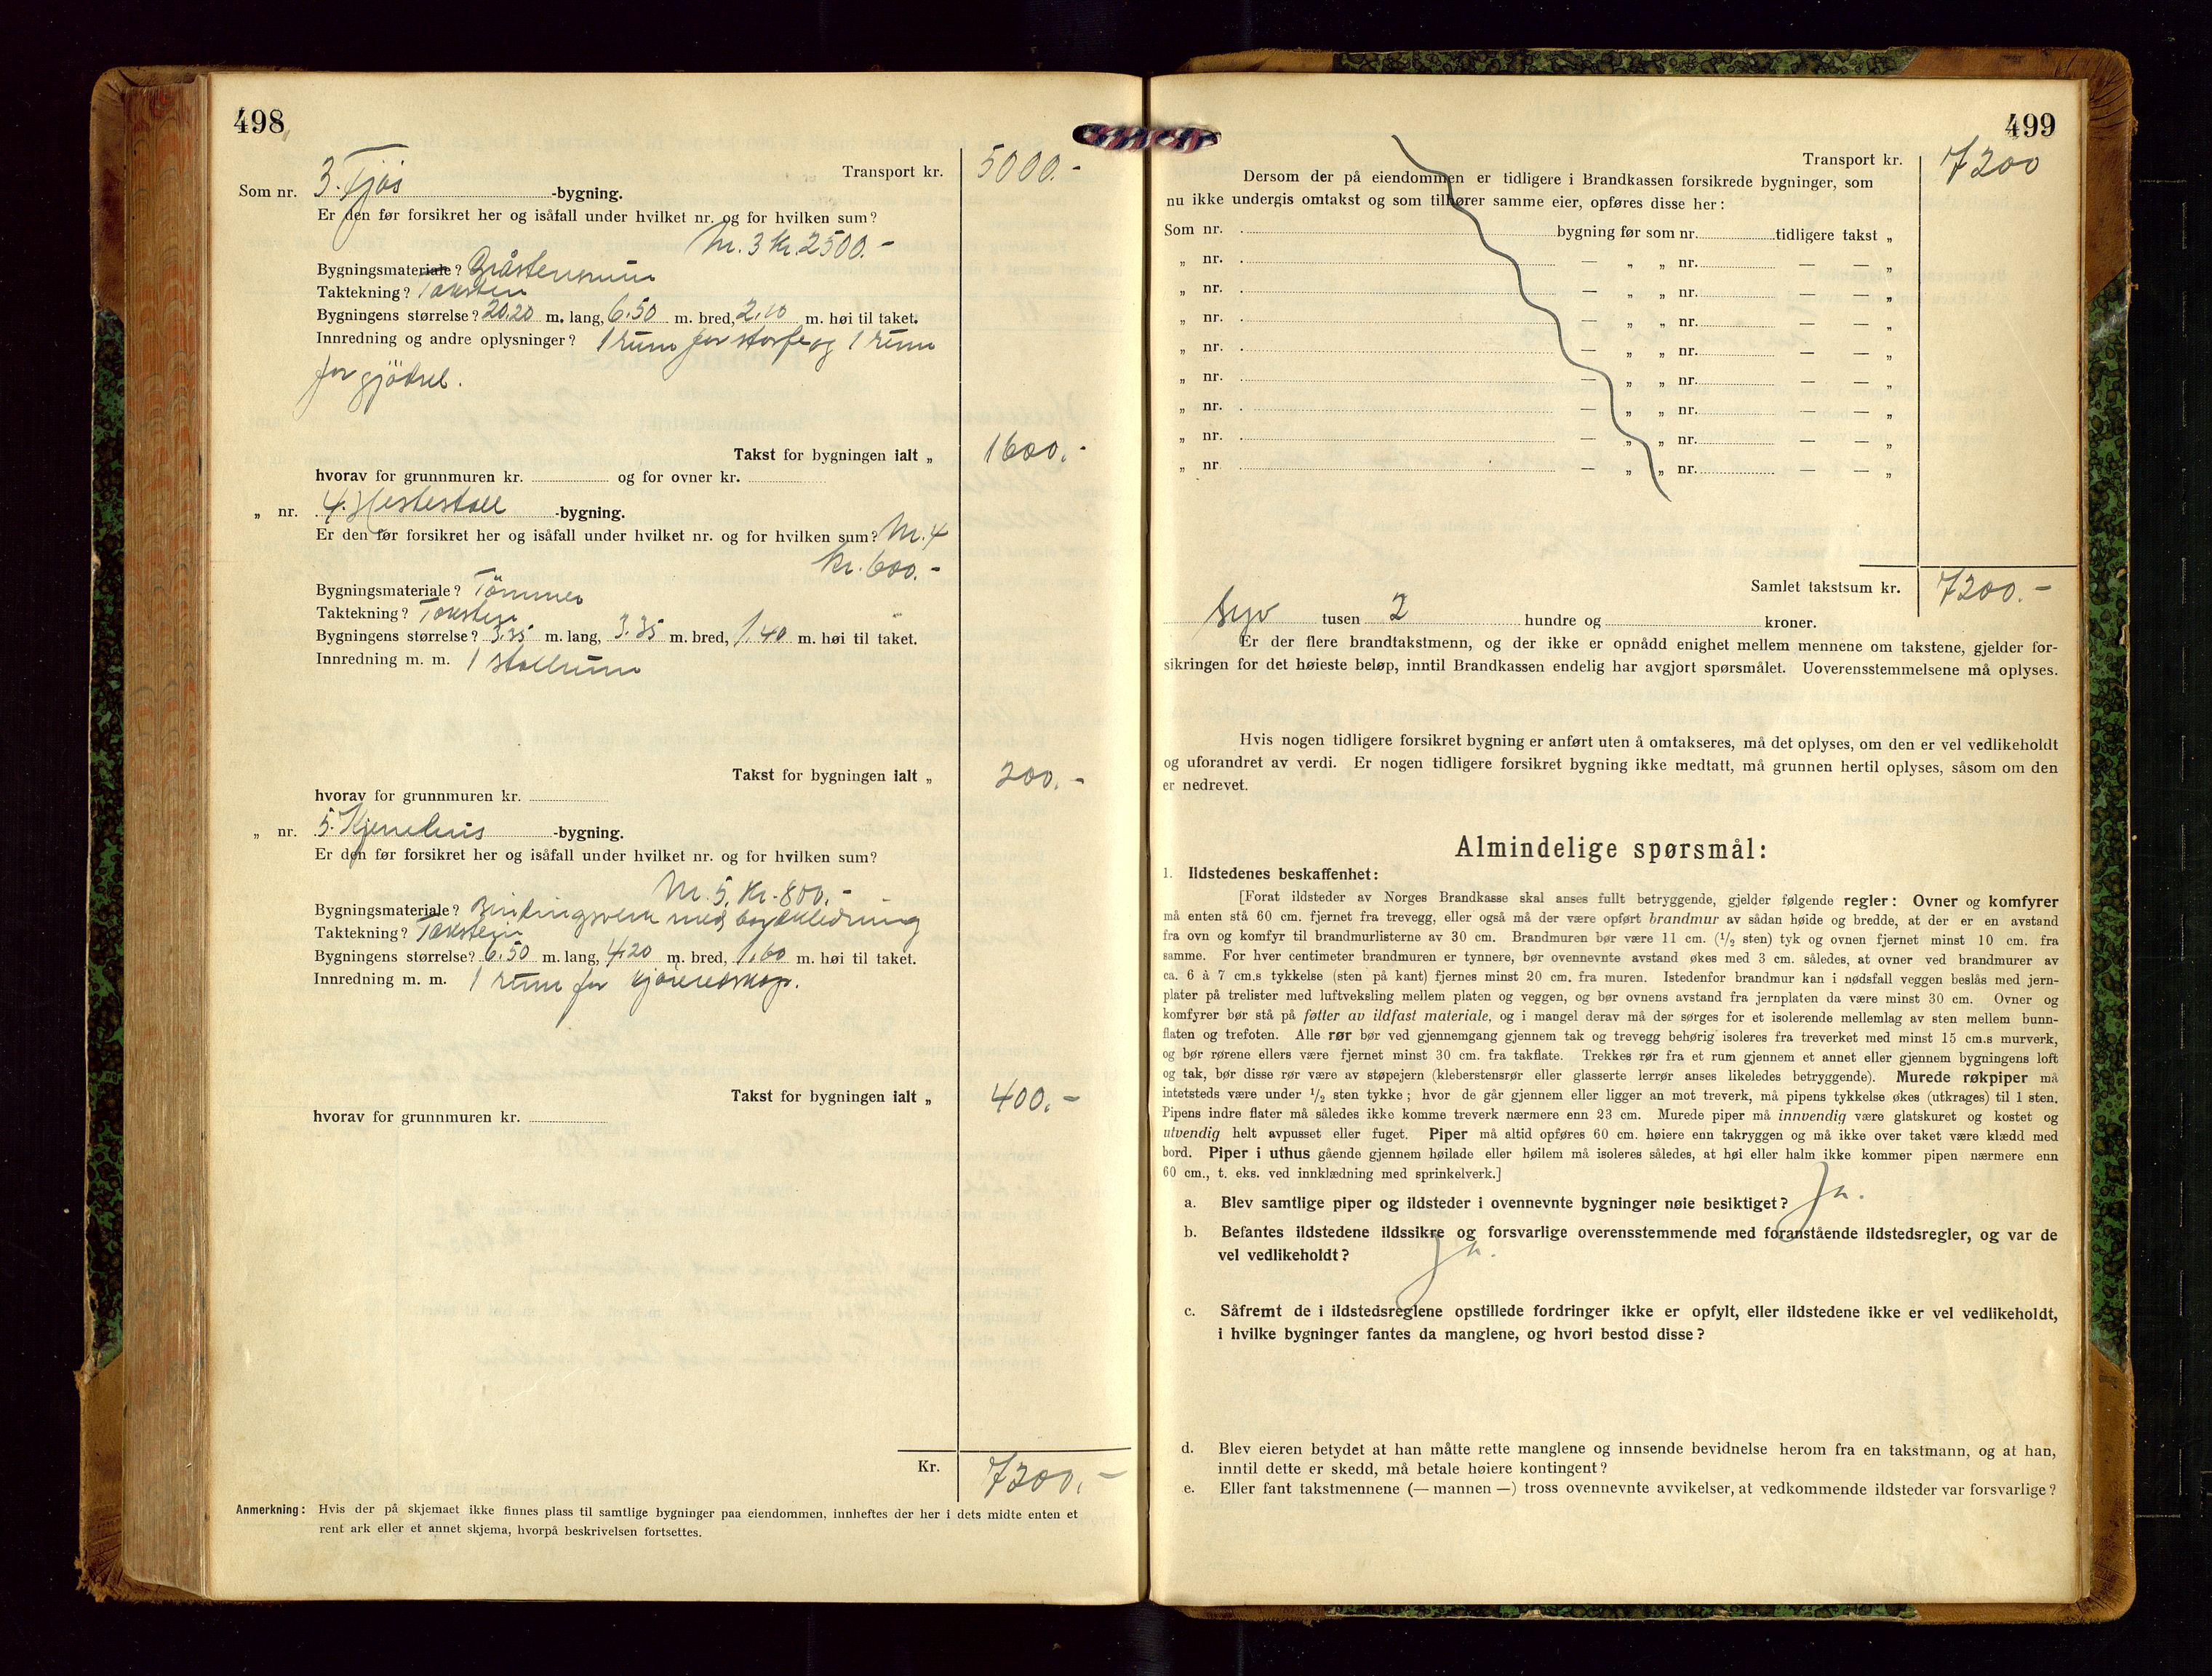 498
Transport kr. 5000.-
Som nr. 3. Fjös -bygning.
Er den før forsikret her og isåfall under hvilket nr. og for hvilken sum?
Nr. 3 Kr. 2500.-
Bygningsmateriale? Gråstensmur
Taktekning? Taksten
Bygningens størrelse? 20.20 m. lang, 6.50 m. bred, 2.10 m. høi til taket.
Innredning og andre oplysninger? 1 rum for storfe og 1 rum
for gjödsel.
Takst for bygningen ialt „ 1600.-
hvorav for grunnmuren kr. og for ovner kr.
„ nr. 4. Hestestall -bygning.
Er den før forsikret her og isåfall under hvilket nr. og for hvilken sum? Nr. 4
Kr. 600.-
Bygningsmateriale? Tömmer
Taktekning? Taksten
Bygningens størrelse? 3.35 m. lang, 3.35 m. bred, 1.40 m. høi til taket.
Innredning m. m. 1 stallrum
Takst for bygningen ialt „ 200.-
hvorav for grunnmuren kr.
„ nr. 5. -bygning.
Er den før forsikret her og isåfall under hvilket nr. og for hvilken sum?
Nr. 5. Kr. 800.-
Bygningsmateriale? Bindingsverk med bordkledning
Taktekning? Taksten
Bygningens størrelse? 6.50 m. lang, 4.20 m. bred, 1.60 m. høi til taket.
Innredning m. m. 1 rum for kjöreredskap.
Takst for bygningen ialt „ 400.-
hvorav for grunnmuren kr.
Kr. 7200.-
Anmerkning: Hvis der på skjemaet ikke finnes plass til samtlige bygninger paa eiendommen, innheftes der her i dets midte enten et
rent ark eller et annet skjema, hvorpå beskrivelsen fortsettes.
499
Transport kr. 7200
Dersom der på eiendommen er tidligere i Brandkassen forsikrede bygninger, som
nu ikke undergis omtakst og som tilhører samme eier, opføres disse her:
Som nr. bygning før som nr. tidligere takst „
„ nr. — „ „ nr. — — „
„ nr. — „ „ nr. — — „
„ nr. — „ „ nr. — — „
„ nr. — „ „ nr. — — „
„ nr. — „ „ nr. — — „
„ nr. — „ „ nr. — — „
„ nr. — „ „ nr. — — „
„ nr — „ „ nr. — — „
Samlet takstsum kr. 7200.-
Syv tusen 2 hundre og kroner.
Er der flere brandtakstmenn, og der ikke er opnådd enighet mellem mennene om takstene, gjelder for-
sikringen for det høieste beløp, inntil Brandkassen endelig har avgjort spørsmålet. Uoverensstemmelsene må oplyses.
Hvis nogen tidligere forsikret bygning er anført uten å omtakseres, må det oplyses, om den er vel vedlikeholdt
og uforandret av verdi. Er nogen tidligere forsikret bygning ikke medtatt, må grunnen hertil oplyses, såsom om den
er nedrevet.
Almindelige spørsmål:
1. Ildstedenes beskaffenhet:
[Forat ildsteder av Norges Brandkasse skal anses fullt betryggende, gjelder følgende regler: Ovner og komfyrer
må enten stå 60 cm. fjernet fra trevegg, eller også må der være opført brandmur av sådan høide og bredde, at der er en avstand
fra ovn og komfyr til brandmurlisterne av 30 cm. Brandmuren bør være 11 cm. (1/2 sten) tyk og ovnen fjernet minst 10 cm. fra
samme. For hver centimeter brandmuren er tynnere, bør ovennevnte avstand økes med 3 cm. således, at ovner ved brandmurer av
ca. 6 à 7 cm.s tykkelse (sten på kant) fjernes minst 20 cm. fra muren. Istedenfor brandmur kan i nødsfall veggen beslås med jern-
plater på trelister med luftveksling mellem platen og veggen, og bør ovnens avstand fra jernplaten da være minst 30 cm. Ovner og
komfyrer bør stå på føtter av ildfast materiale, og i mangel derav må der sørges for et isolerende mellemlag av sten mellem bunn-
flaten og trefoten. Alle rør bør ved gjennemgang gjennem tak og trevegg behørig isoleres fra treverket med minst 15 cm.s murverk,
og bør rørene ellers være fjernet minst 30 cm. fra takflate. Trekkes rør fra et rum gjennem et annet eller gjennem bygningens loft
og tak, bør disse rør være av støpejern (kleberstensrør eller glasserte lerrør anses likeledes betryggende). Murede røkpiper må
intetsteds være under 1/2 sten tykke; hvor de går gjennem eller ligger an mot treverk, må pipens tykkelse økes (utkrages) til 1 sten.
Pipens indre flater må således ikke komme treverk nærmere enn 23 cm. Murede piper må innvendig være glatskuret og kostet og
utvendig helt avpusset eller fuget. Piper må altid opføres 60 cm. høiere enn takryggen og må ikke over taket være klædd med
bord. Piper i uthus gående gjennem høilade eller høilem må isoleres således, at høi eller halm ikke kommer pipen nærmere enn
60 cm., t. eks. ved innklædning med sprinkelverk.]
a. Blev samtlige piper og ildsteder i ovennevnte bygninger nøie besiktiget? Ja.
b. Befantes ildstedene ildssikre og forsvarlige overensstemmende med foranstående ildstedsregler, og var de
vel vedlikeholdt? Ja.
c. Såfremt de i ildstedsreglene opstillede fordringer ikke er opfylt, eller ildstedene ikke er vel vedlikeholdt,
i hvilke bygninger fantes da manglene, og hvori bestod disse?
d. Blev eieren betydet at han måtte rette manglene og innsende bevidnelse herom fra en takstmann, og at han,
inntil dette er skedd, må betale høiere kontingent?
e. Eller fant takstmennene (— mannen —) tross ovennevnte avvikelser, at vedkommende ildsteder var forsvarlige?